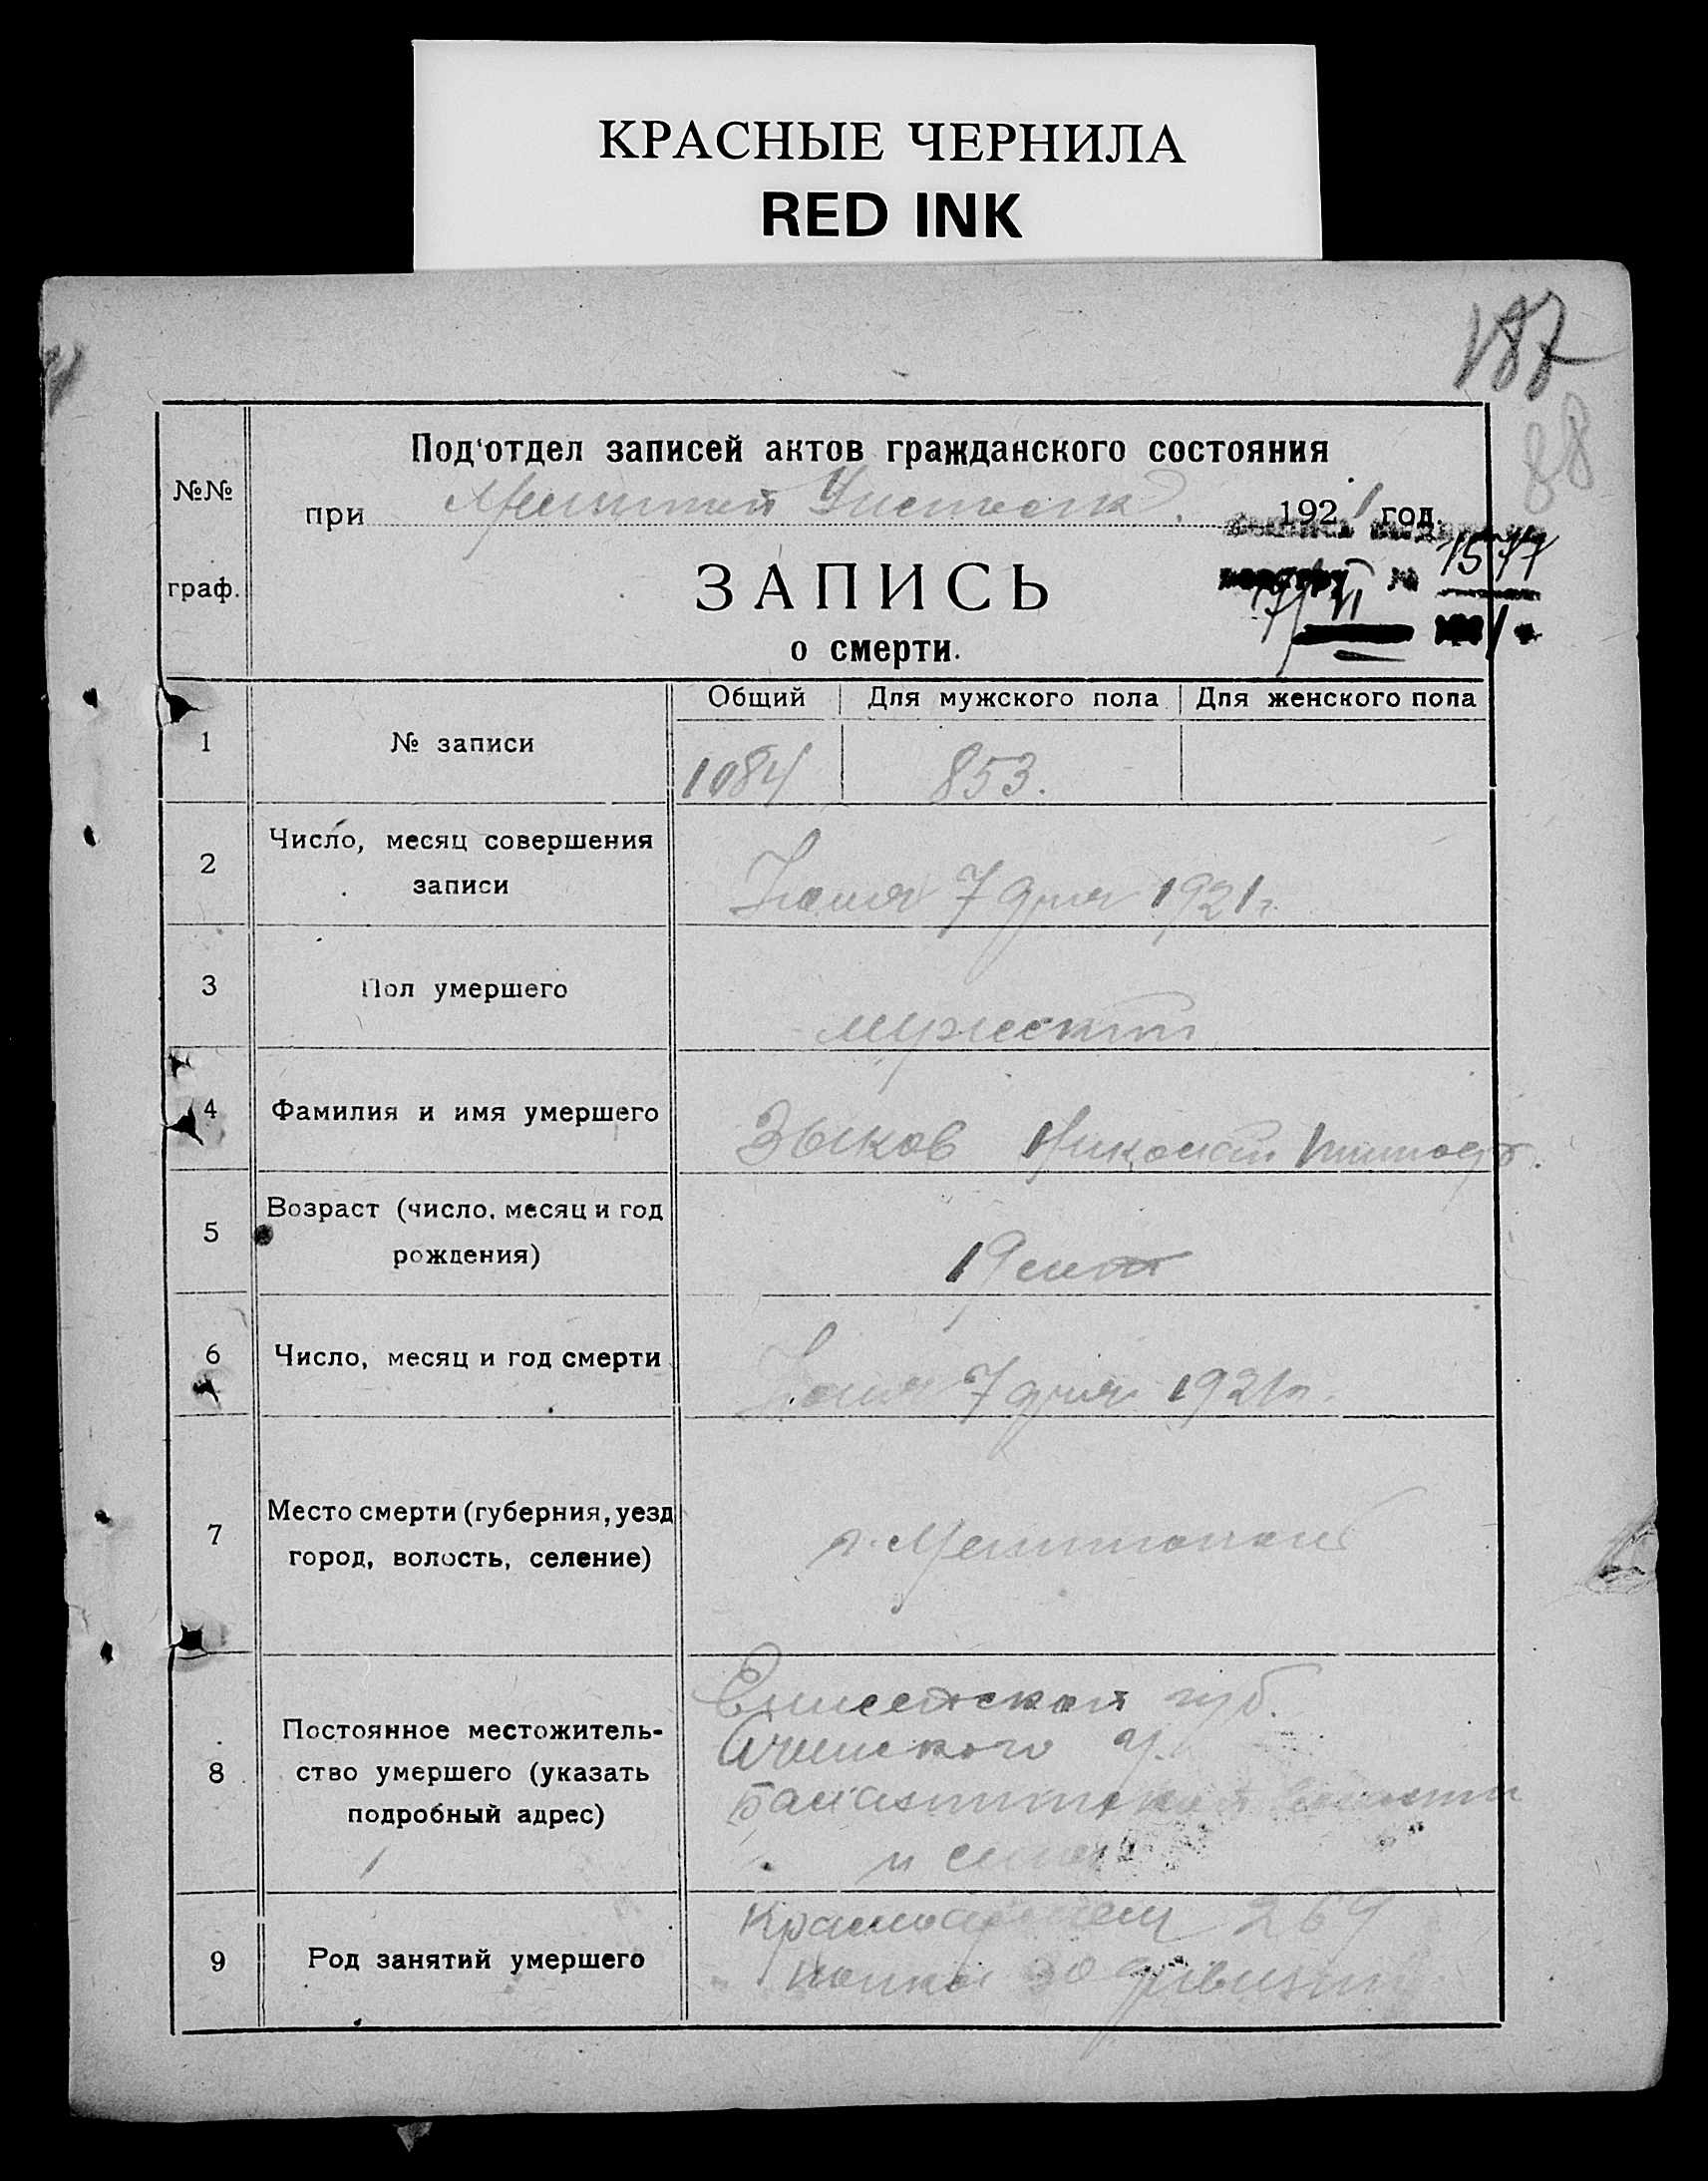 КРАСНЫЕ ЧЕРНИЛА
RED INK
187
88
Под'отдел записей актов гражданского состояния
№№
при 1921 год.
1577
граф.
ЗАПИСЬ
о смерти.
Общий Для мужского пола Для женского пола
1 № записи 1084 853.
Число, месяц совершения
2 записи Июня 7 дня 1921г
3 Пол умершего мужской
4 Фамилия и имя умершего Зыков Николай
Возраст (число, месяц и год
5 рождения) 19 лет
6 Число, месяц и год смерти Июня 7 дня 1921г.
Место смерти (губерния, уезд
7 город, волость, селение) г. Мелитополь
Енисейской губ.
Постоянное местожитель- Ачинского у.
8 ство умершего (указать волости
подробный адрес) и села
Красноармеец 269
9 Род занятий умершего полка 30 дивизии